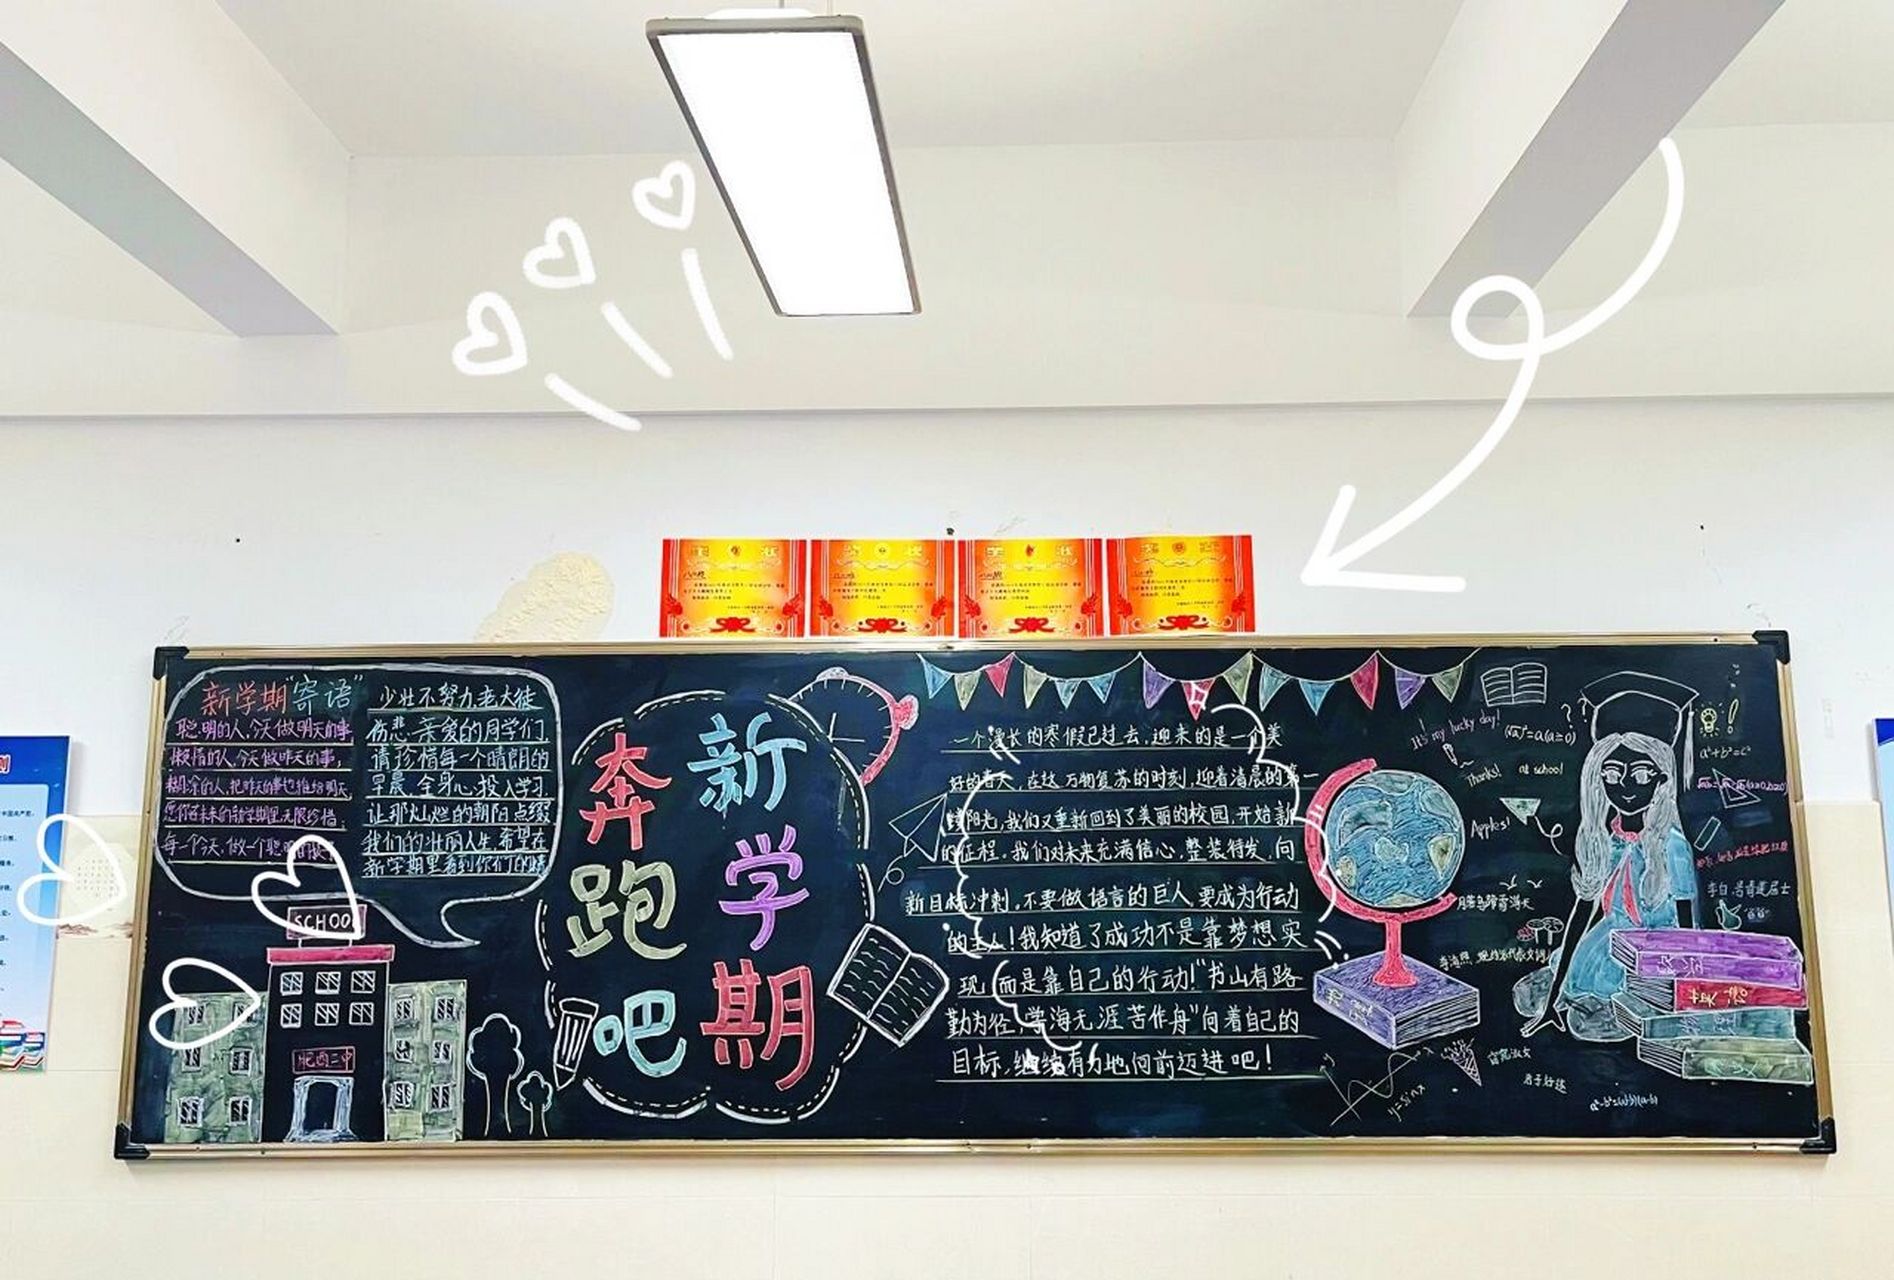 新学期"寄语"
聪明的人,今天做明天的事,
懒惰的人,今天做昨天的事,
糊涂的人,把昨天的事也推给明天,
愿你在未来的新学期里,无限珍惜
每一个今天,做一个聪明
少壮不努力,老大徒
伤悲,亲爱的同学们,
请珍惜每一个晴朗的
早晨,全身心投入学习,
让那灿烂的朝阳点缀
我们的壮丽人生,希望在
新学期里看到你们的
SCHOOL
肥西二中
新学期
奔跑吧
一个漫长的寒假已过去,迎来的是一个美
好的春天,在这万物复苏的时刻,迎着清晨的第一
阳光,我们又重新回到了美丽的校园,开始新
的征程。我们对未来充满信心,整装待发,向
新目标冲刺。不要做语言的巨人,要成为行动
的主人!我知道了成功不是靠梦想实
现,而是靠自己的行动!"书山有路
勤为径,学海无涯苦作舟"向着自己的
目标,继续有力地向前迈进吧!
It's my lucky day!
Thanks!
at school
Apples!
a²+b²=c²
李白,号青莲居士
窈窕淑女
君子好逑
y=sinx
a²-b²=(a+b)(a-b)